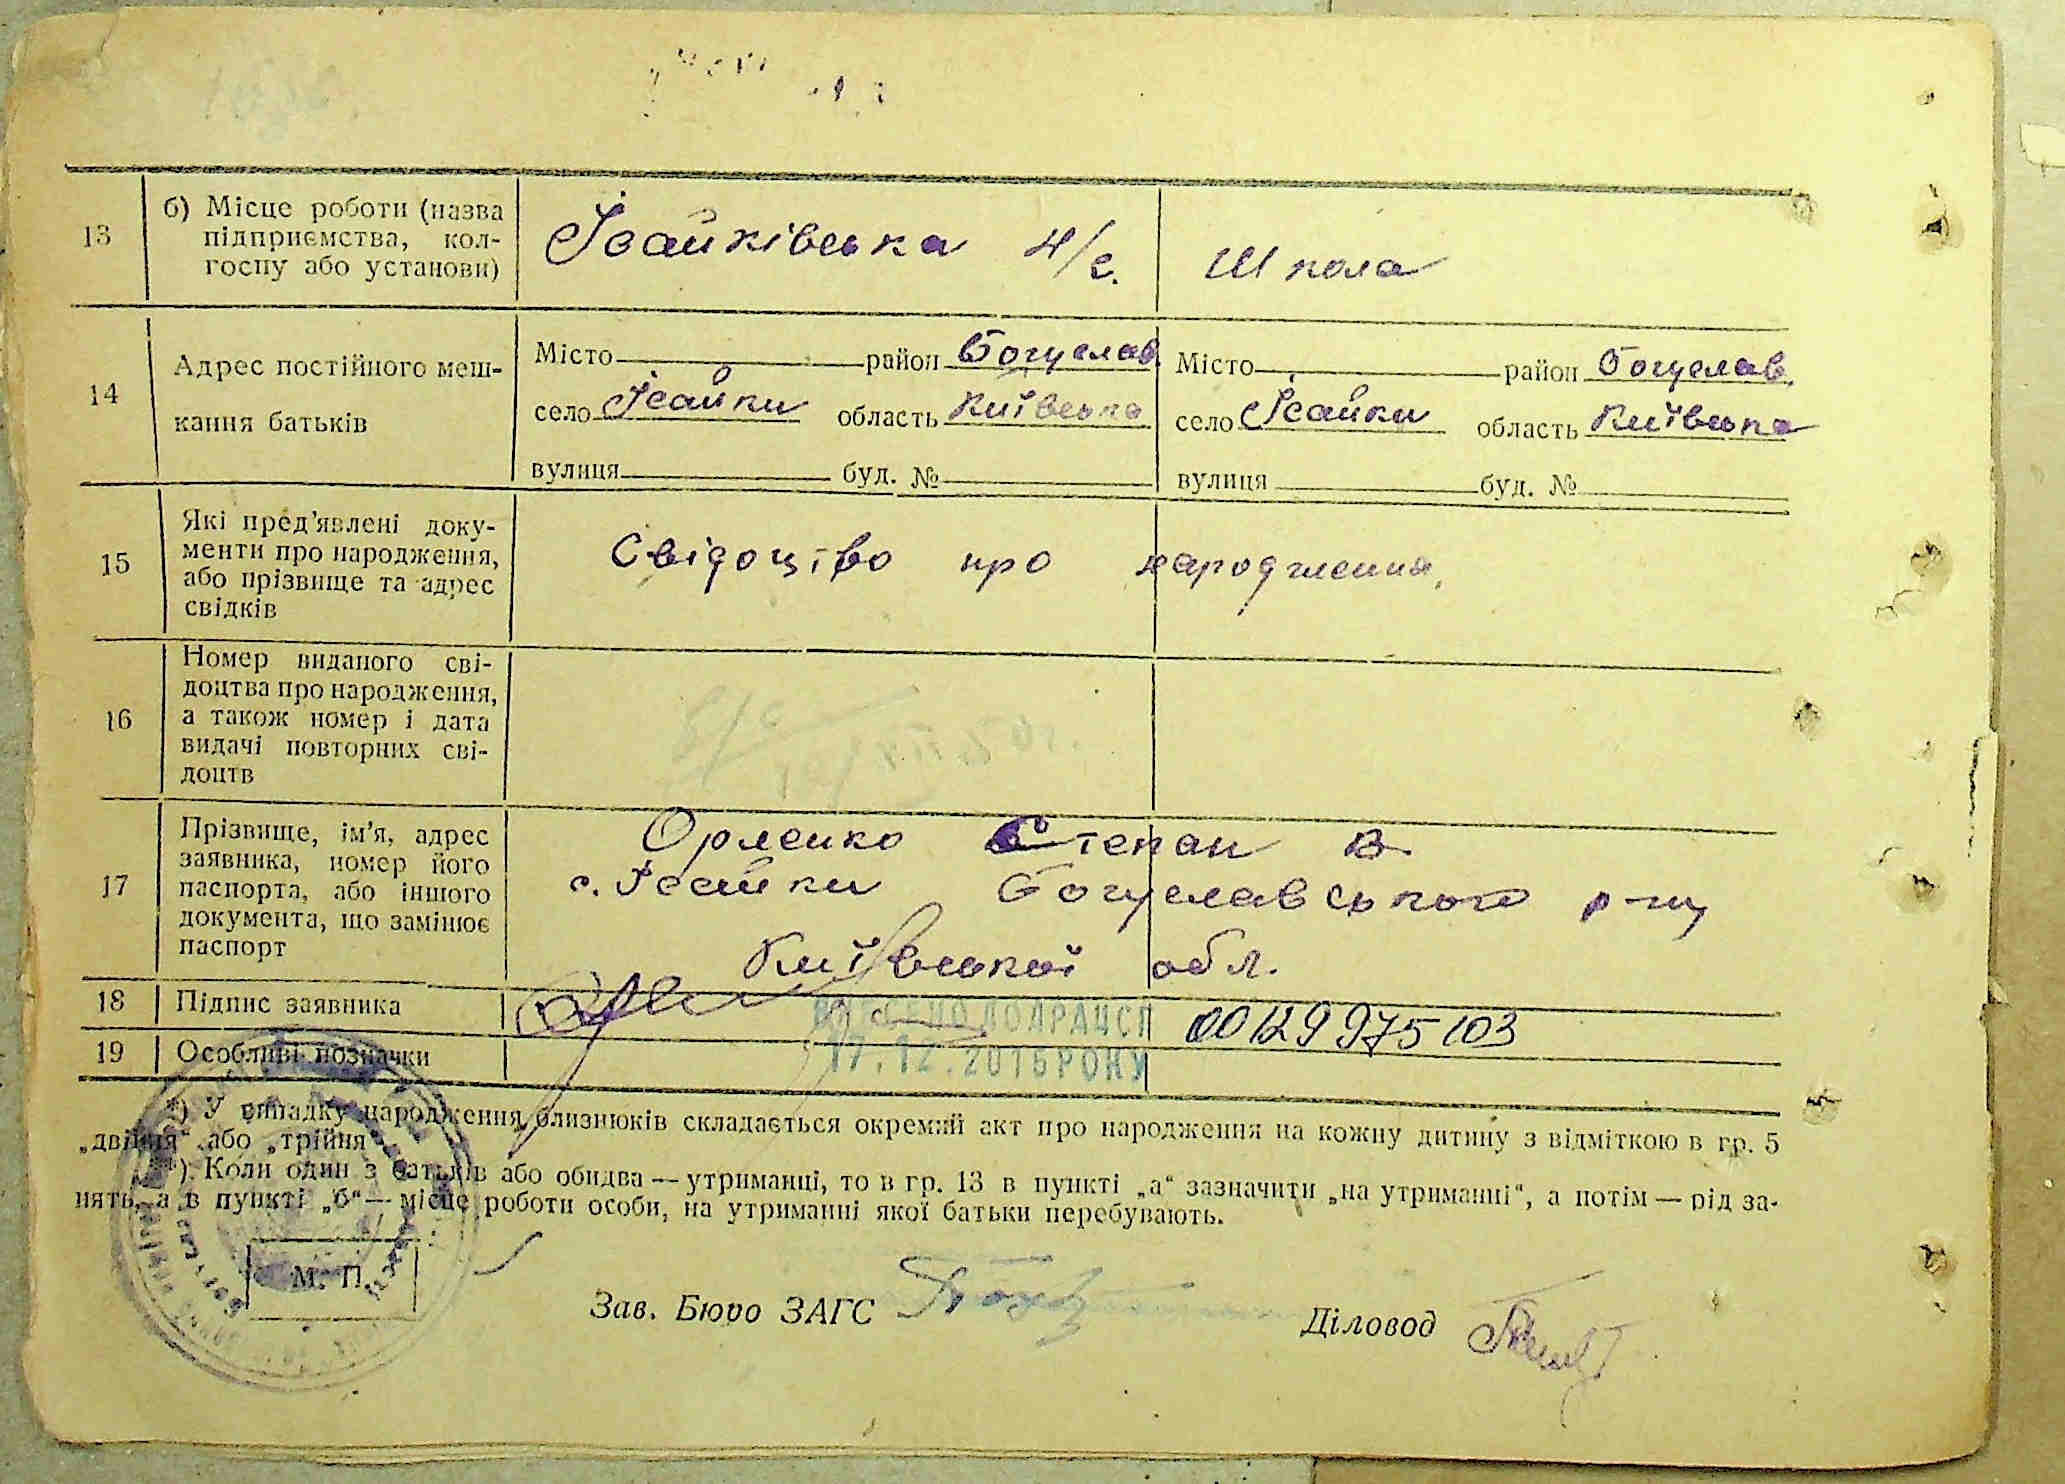 13
б) Місце роботи (назва
підприємства, кол-
госпу або установи)
Ісайківська н/с. школа
14
Адрес постійного меш-
кання батьків
Місто район Богуслав.
село Ісайки область Київська
вулиця буд. №
Місто район Богуслав.
село Ісайки область Київська
вулиця буд. №
15
Які пред'явлені доку-
менти про народження,
або прізвище та адрес
свідків
Свідоцтво про народження.
16
Номер виданого сві-
доцтва про народження,
а також номер і дата
видачі повторних сві-
доцтв
17
Прізвище, ім'я, адрес
заявника, номер його
паспорта, або іншого
документа, що замінює
паспорт
Орленко Степан В.
с. Ісайки Богуславського р-ну
Київської обл.
18 Підпис заявника
ВНЕСЕНО ДО ДРАЦСГ 00129975103
19 Особливі позначки
17.12.2016 РОКУ
*) У випадку народження близнюків складається окремий акт про народження на кожну дитину з відміткою в гр. 5
„двійня“ або „трійня“.
**) Коли один з батьків або обидва — утриманці, то в гр. 13 в пункті „а“ зазначити „на утриманні“, а потім — рід за-
нять, а в пункті „б“ — місце роботи особи, на утриманні якої батьки перебувають.
М. П.
Зав. Бюро ЗАГС
Діловод